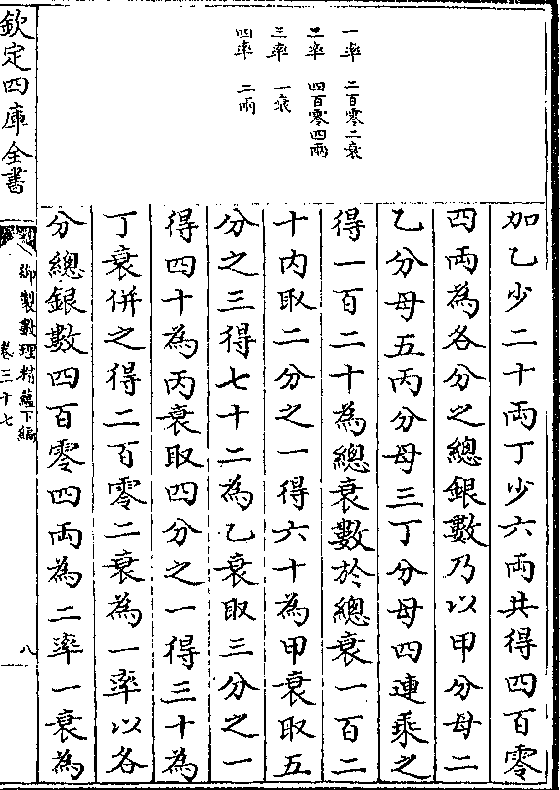 一率　二百零二衰
二率　四百零四兩
三率　一衰
四率　二兩
加乙少二十兩丁少六兩共得四百零
四兩為各分之總銀數乃以甲分母二
乙分母五丙分母三丁分母四連乘之
得一百二十為總衰數於總衰一百二
十內取二分之一得六十為甲衰取五
分之三得七十二為乙衰取三分之一
得四十為丙衰取四分之一得三十為
丁衰併之得二百零二衰為一率以各
分總銀數四百零四兩為二率一衰為
欽定四庫全書
御製數理精蘊下編
卷三十七
八